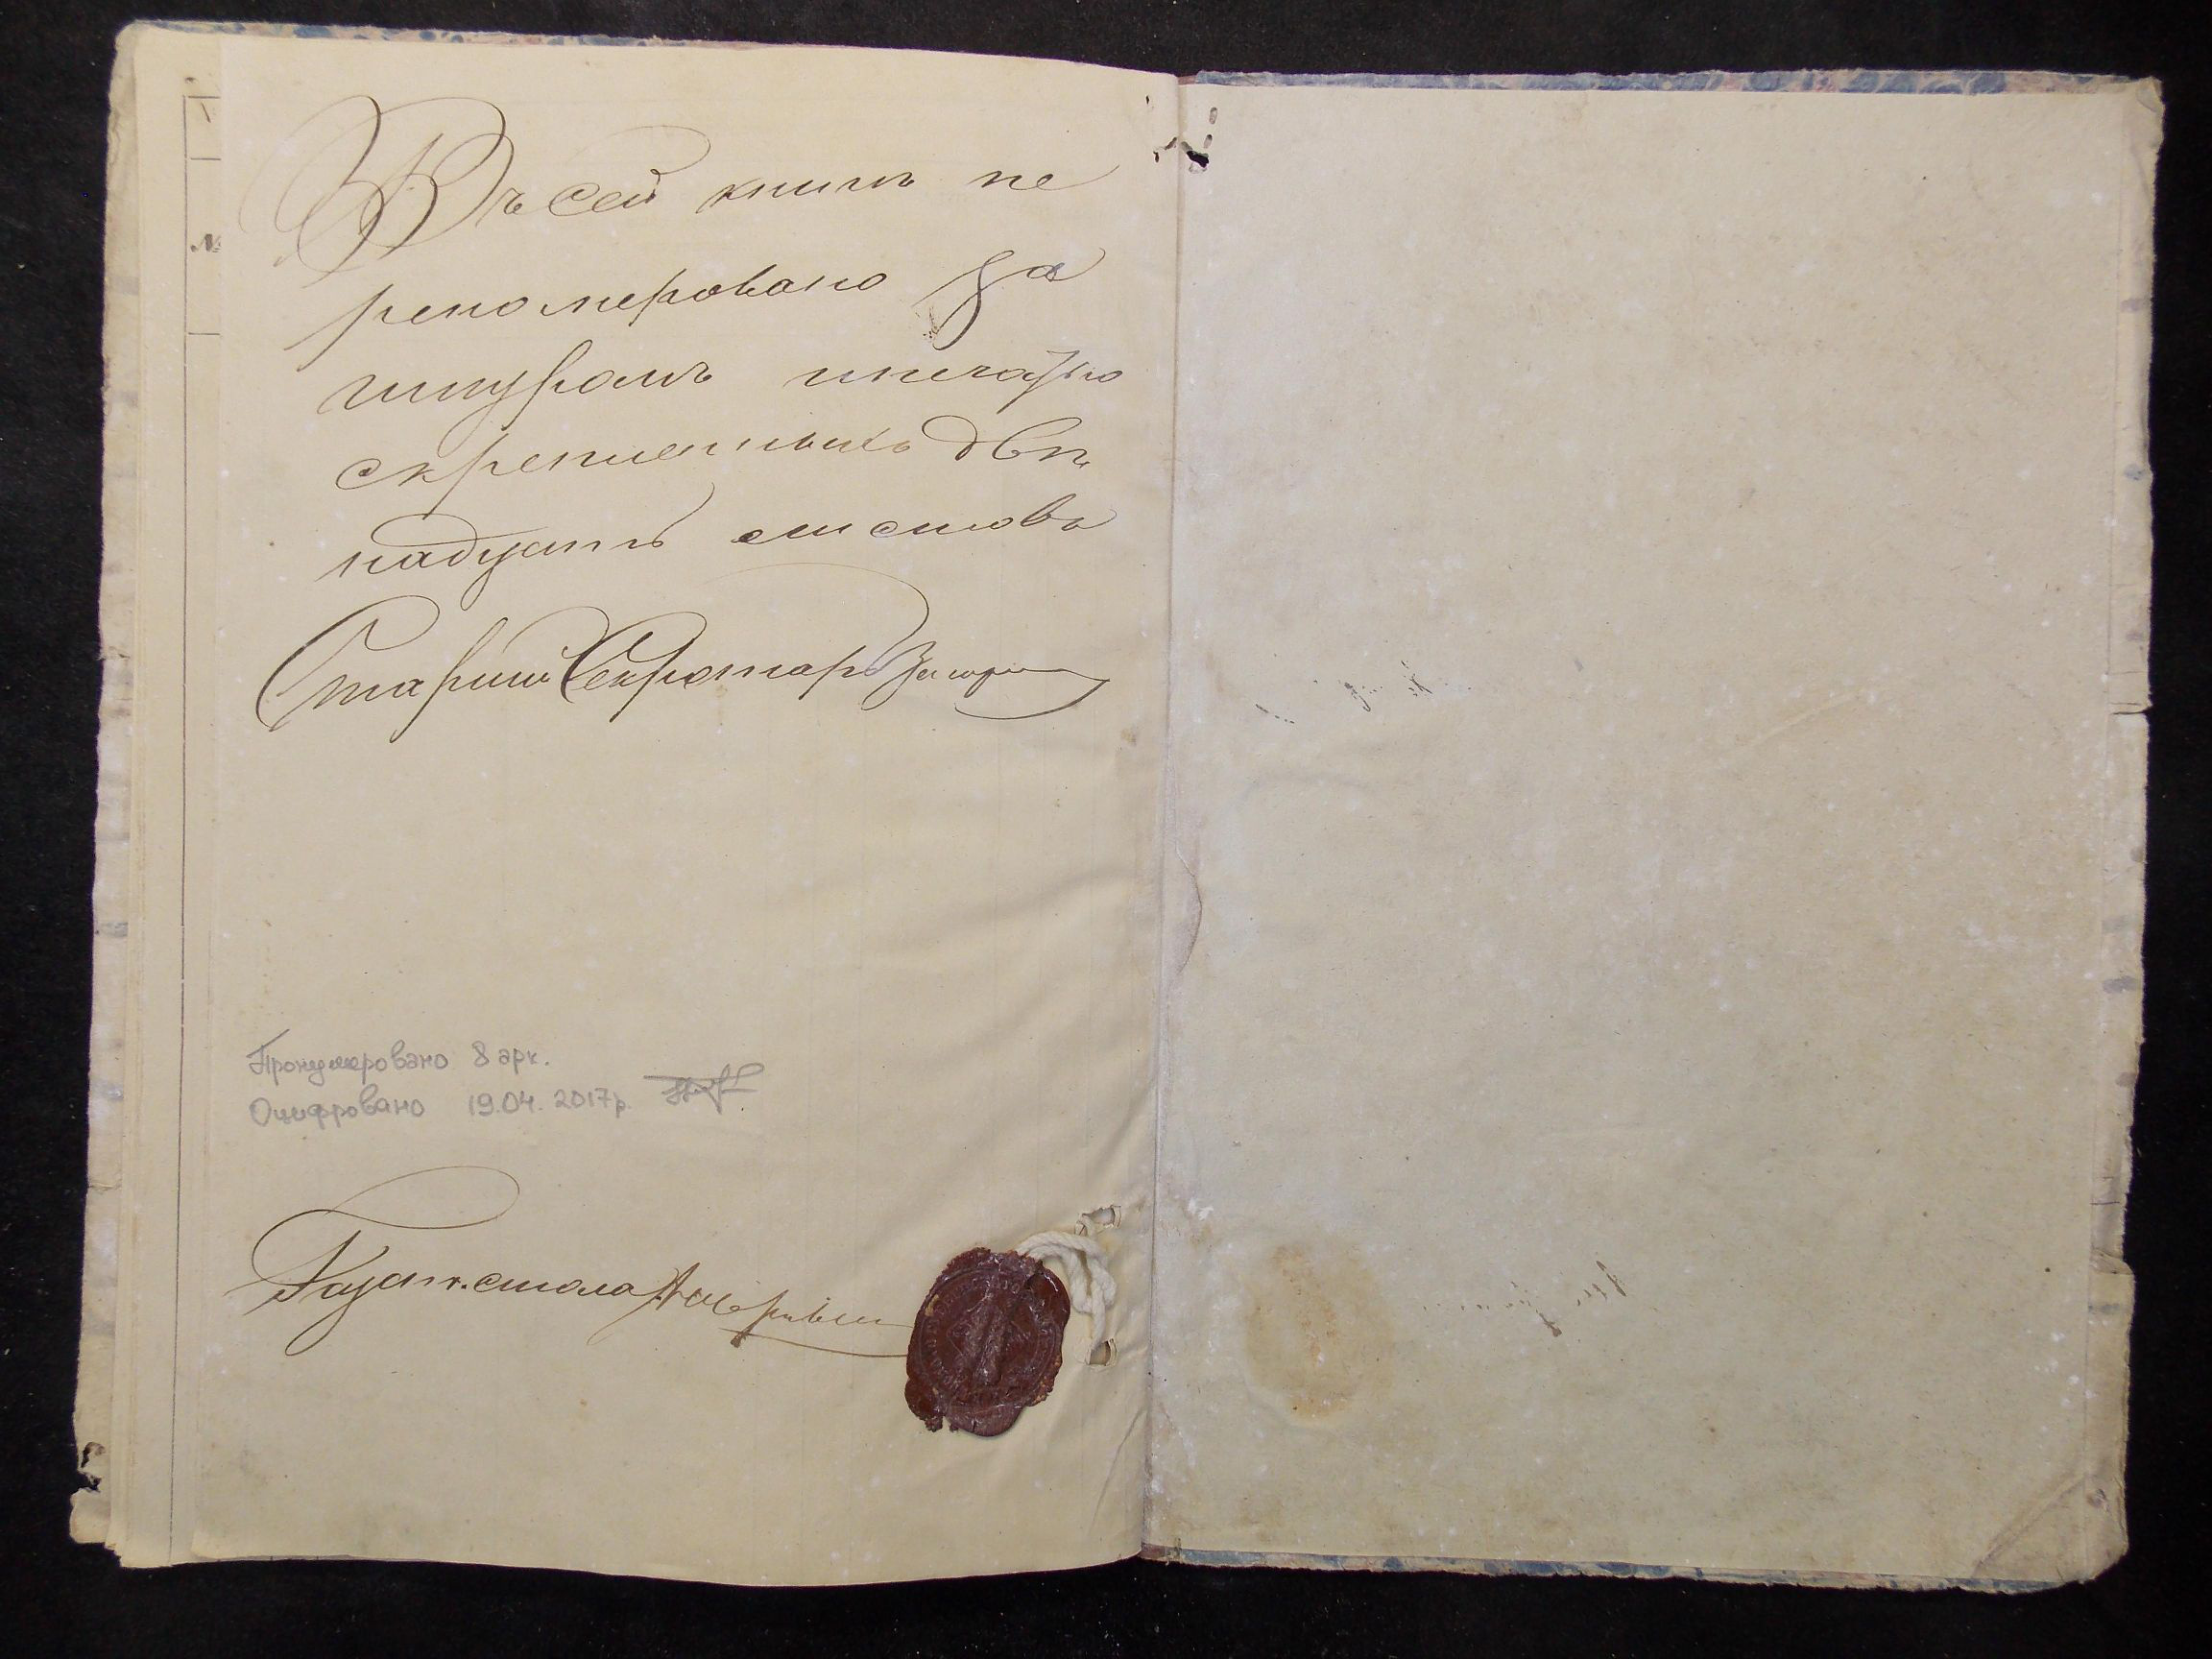 Въ сей книгѣ пе
реномеровано за
шнуромъ и печатью
скрепленныхъ двѣ
надцать листовъ
Старший Секретарь
Пронумеровано 8 арк.
Оцифровано 19.04.2017р.
стола